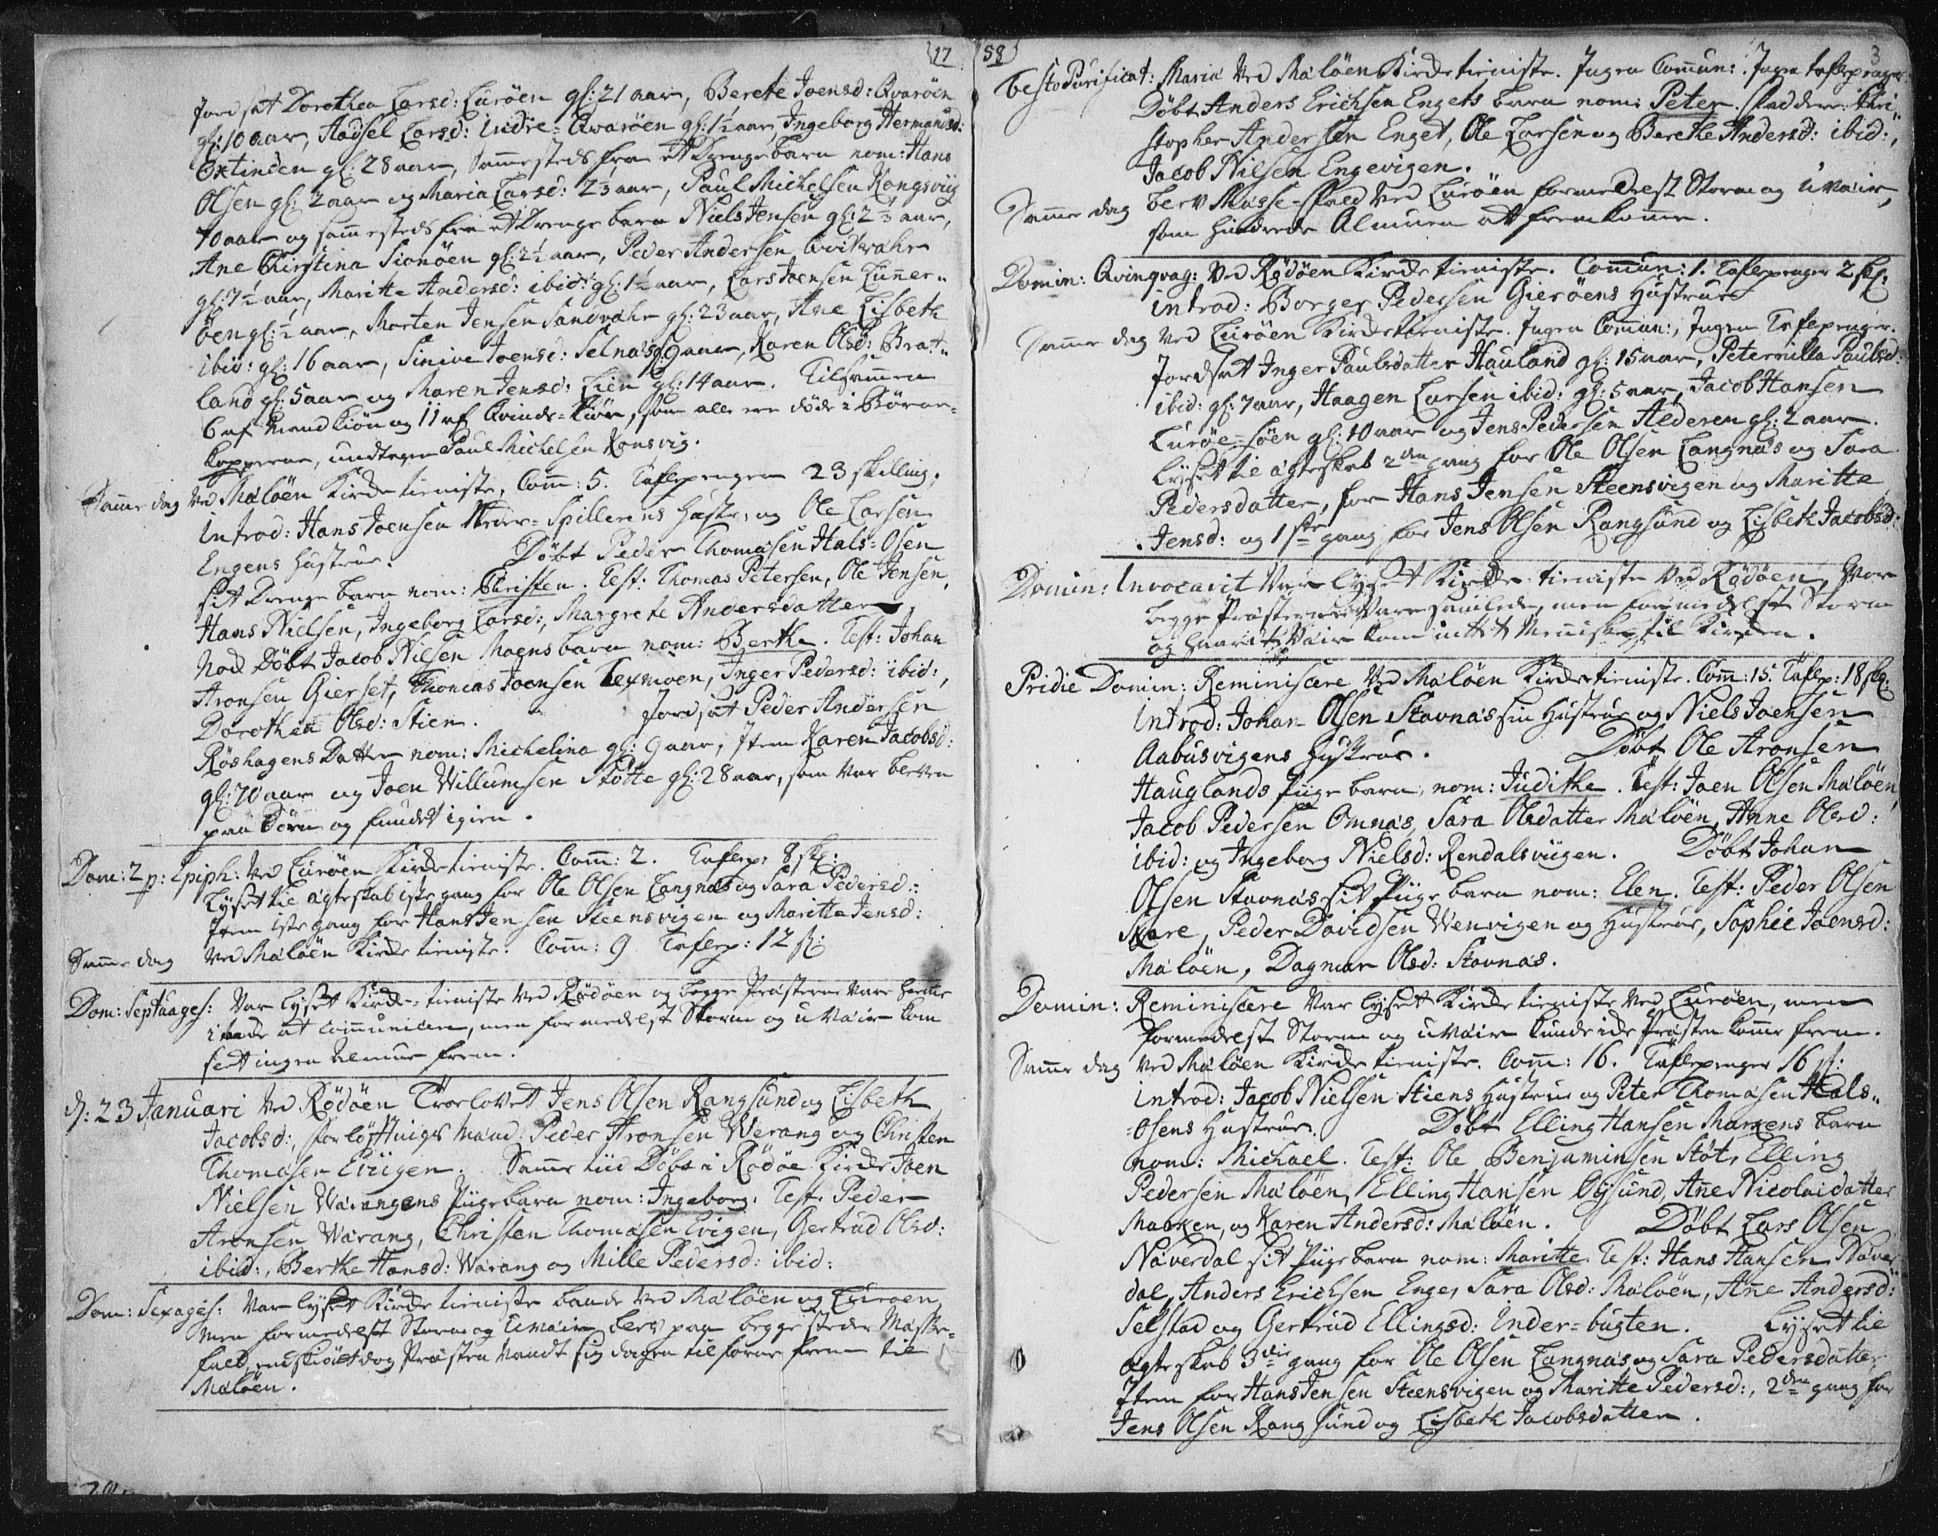 17
Jordsat Dorothea Larsd: Luröen gl: 21 aar, Berete Joensd: Qvaröen
gl: 10 aar, Aadsel Larsd: Indre-Qvaröen gl: 1½ aar, Ingeborg Hermansd:
Oxtinden gl: 28 aar, Sammesteds fra et Drengebarn nom: Hans
Olsen gl: 2 aar og Maria Larsd: 2½ aar, Paul Michelsen Kongsviig
70 aar og sammesteds fra et Drenge barn Niels Jensen gl: 2½ aar,
Ane Kirstina Sionöen gl: 2½ aar, Peder Andersen Qvitvahr
gl: 7½ aar, Maritte Andersd: ibid: gl: 1½ aar, Lars Joensen Luner-
öen gl: ½ aar, Morten Jensen Sandvahr gl: 23 aar, Ane Lisbeth
ibid: gl: 16 aar, Sinive Joensd: Selnæs gl: 9 aar, Karen Olsd: Brat-
land gl: 5 aar og Maren Jensd: Lien gl: 14 aar. Tilsammen
6 af Mandkiön og 11 af Qvinde-Kiön, som alle ere döde i Börne-
kopperne, undtagen Paul Michelsen Konsvig.
Samme dag ved Mælöen Kirketieniste, Comm: 5. Taflepengen 23 skilling,
Introd: Hans Joensen Spillerens Hustr: og Ole Larsen
Engens Hustrue. Döbt Peder Thomasen Hals-Osen
sit Drenge barn nom: Christen. Test: Thomas Petersen, Ole Jensen,
Hans Nielsen, Ingeborg Larsd:, Margrete Andersdatter
Nok Döbt Jacob Nilsen Moens barn nom: Berthe. Test: Johan
Aronsen Gierset, Thomas Joensen Texmoen, Inger Pedersd: ibid:,
Dorothea Olsd: Stien. Jordsat Peder Andersen
Röshagens Datter nom: Michelina gl: 9 aar, Item Karen Jacobsd:
gl: 70 aar og Joen Willumsen Stötte gl: 28 aar, som var bleven
paa Söen og fundet igien.
Dom: 2 p: Epiph: ved Luröen Kirketieniste. Comm: 2. Taflep: 8 sk:
Lyset til ægteskab 1ste gang for Ole Olsen Langnæs og Sara Pedersd:
Item 1ste gang for Hans Jensen Steensvigen og Maritte Jensd:
Samme dag ved Mælöen Kirke tieniste. Comm: 9 Taflep: 12 s:
Dom: Septuages: Var lyset Kirke-tieniste ved Rödöen og begge Præsterne vare komne
at communicere, men formedelst Storm og uvair kom
ingen Almue frem.
d: 23 Januari ved Rödöen Troelovet Jens Olsen Rangsund og Lisbeth
Jacobsd:, forlöftnings Mænd: Peder Aronsen Werang og Christen
Thomasen Eviigen. Samme tiid Döbt i Rödöe Kirke Joen
Nielsen Wærangens Pigebarn nom: Ingeborg. Test: Peder
Aronsen Wærang, Christen Thomasen Evigen, Gertrud Olsd:
ibid:, Berthe Hansd: Wærang og Mille Pedersd: ibid:
Dom: Sexages: Var lyset Kirke tieniste baade ved Mælöen og Luröen,
men formedelst Storm og Uvair blev paa begge steder Messe-
fald, endskiönt dog Præsten vandt sig dagen tilforne frem til
Mælöen.
58
3
Festo Purificat: Mariæ ved Mælöen Kirketieniste. Ingen Comun:. Ingen taflepenger
Döbt Anders Erichsen Engets barn nom: Peter. fadder: Chri-
stopher Andersen Enget, Ole Larsen og Berethe Andersd: ibid:,
Jacob Nilsen Engevigen.
Samme dag blev Messe-fald ved Luröen formedelst Storm og Uvair,
som hindrede Almuen at fremkomme.
Domin: Qvinqvag: ved Rödöen Kirke tieniste. Comun: 1. Taflepenger 2 sk:
introd: Borger Pedersen Gieröens Hustrue
Samme dag ved Luröen Kirketieniste. Ingen Comun:, Ingen Taflepenger.
Jordsat Inger Paulsdatter Hauland gl: 15 aar, Peternilla Paulsd:
ibid: gl: 7 aar, Haagen Larsen ibid: gl: 5 aar, Jacob Hansen
Luröe-söen gl: 10 aar og Jens Pedersen Alderen gl: 2 aar.
Lyset til ægteskab 2den gang for Ole Olsen Langnæs og Sara
Pedersdatter, for Hans Jensen Steensvigen og Maritte
Jensd: og 1ste gang for Jens Olsen Rangsund og Lisbeth Jacobsd:
Domin: Invocavit Var lyset Kirke-tieniste ved Rödöen, hvor
begge Præsterne vare samlede, men formedelst Storm
og haart Vair kom intet Menniske til Kirken.
Pridie Domin: Reminiscere ved Mælöen Kirketieniste. Comm: 15. Taflep: 18 sk:
Introd: Johan Olsen Stavnæs sin Hustrue og Niels Joensen
Aabusvigens Hustrue. Döbt Ole Aronsen
Hauglands Piige barn, nom: Judithe. Test: Joen Olsen Mælöen,
Jacob Pedersen Omnæs, Sara Olsdatter Mælöen, Anne Olsd:
ibid: og Ingeborg Nielsd: Rendalsviigen. Döbt Johan
Olsen Stavnæs sit Piige barn nom: Elen. Test: Peder Olsen
Skare, Peder Davidsen Wenvigen og Hustrue, Sophie Joensd:
Mælöen, Dagmar Olsd: Stavnæs.
Domin: Reminiscere Var lyset Kirke tieniste ved Luröen, men
formedelst Storm og uvair kunde icke Præsten komme frem.
Samme dag ved Mælöen Kirke tieniste. Comm: 16. Taflepenger 16 s:
introd: Jacob Nielsen Stiens Hustrue og Peter Thomasen Hals-
-Osens Hustrue. Döbt Elling Hansen Markens barn
nom: Michael. Test: Ole Benjaminsen Stöt, Elling
Pedersen Mælöen, Elling Hansen Oysund, Ane Nicolaidatter
Marken, og Karen Andersd: Mælöen. Döbt Lars Olsen
Næverdal sit Piige barn nom: Maritte. Test: Hans Hansen Næver-
dal, Anders Erichsen Enge, Sara Olsd: Mælöen, Ane Andersd:
Selstad og Gertrud Ellingsd: Ender-bugten. Lyset til
ægteskab 3die gang for Ole Olsen Langnæs og Sara Pedersdatter
Item for Hans Jensen Steensvigen og Maritte Pedersd:, 2den gang for
Jens Olsen Rangsund og Lisbeth Jacobsdatter.